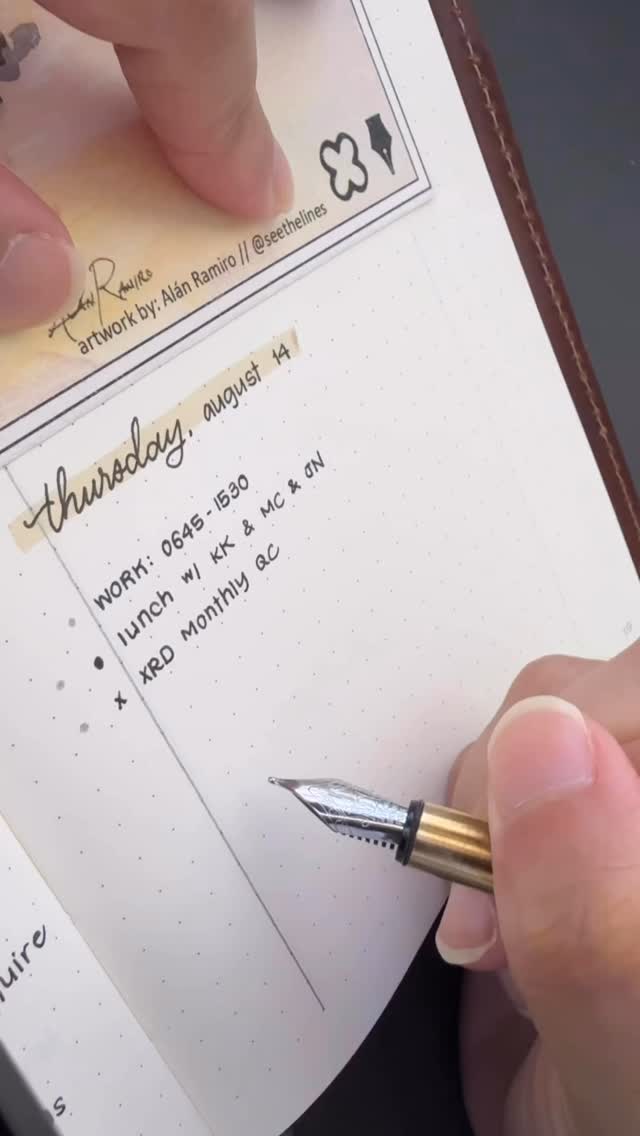 ALÁN RAMIRO
artwork by: Alán Ramiro // @seethelines
thursday, august 14
WORK: 0645-1530
lunch w/ KK & MC & JN
x XRD Monthly QC
uire
s